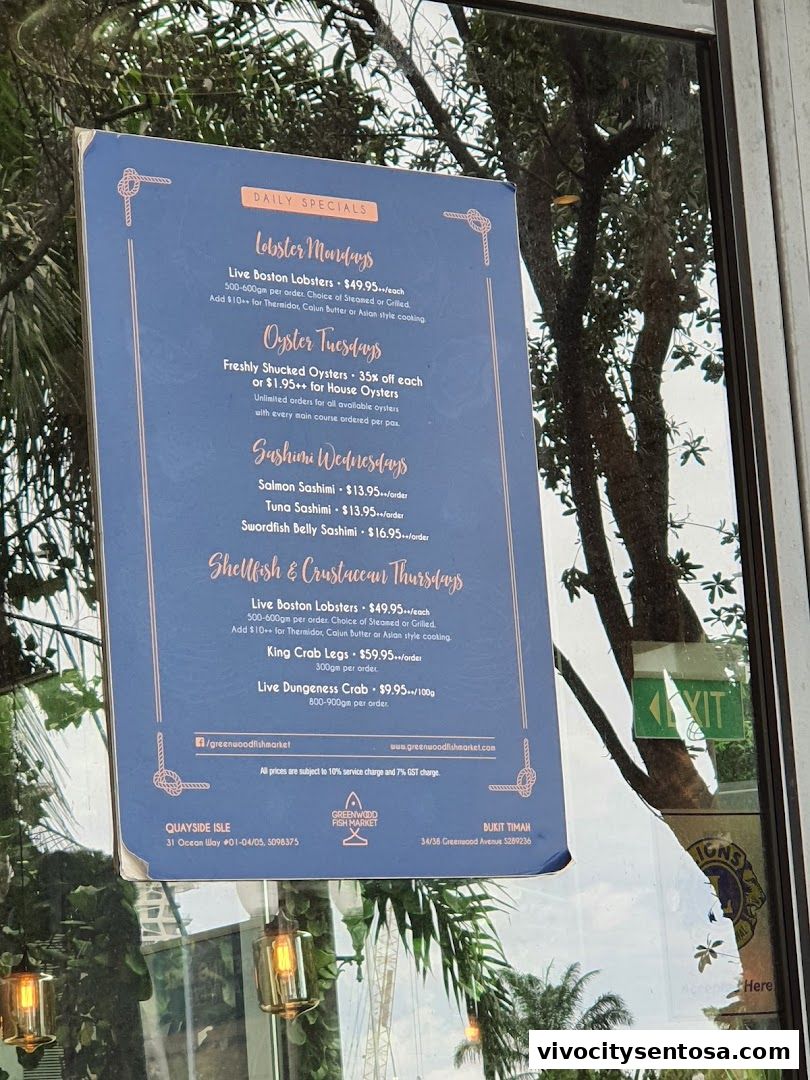 DAILY SPECIALS
Lobster Mondays
Live Boston Lobsters • $49.95++/each
500-600gm per order. Choice of Steamed or Grilled.
Add $10++ for Thermidor, Cajun Butter or Asian style cooking.
Oyster Tuesdays
Freshly Shucked Oysters • 35% off each
or $1.95++ for House Oysters
Unlimited orders for all available oysters
with every main course ordered per pax.
Sashimi Wednesdays
Salmon Sashimi • $13.95++/order
Tuna Sashimi • $13.95++/order
Swordfish Belly Sashimi • $16.95++/order
Shellfish & Crustacean Thursdays
Live Boston Lobsters • $49.95++/each
500-600gm per order. Choice of Steamed or Grilled.
Add $10++ for Thermidor, Cajun Butter or Asian style cooking.
King Crab Legs • $59.95++/order
300gm per order.
Live Dungeness Crab • $9.95++/100g
800-900gm per order.
/greenwoodfishmarket www.greenwoodfishmarket.com
All prices are subject to 10% service charge and 7% GST charge.
GREENWOOD
FISH MARKET
QUAYSIDE ISLE
31 Ocean Way #01-04/05, S098375
BUKIT TIMAH
34/38 Greenwood Avenue S289236
EXIT
LIONS
L
Accepted Here
vivocitysentosa.com